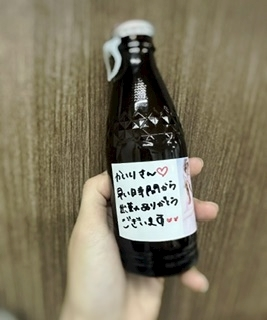 かいりさん♡
早い時間から
出営ありがとう
ございます♥♥